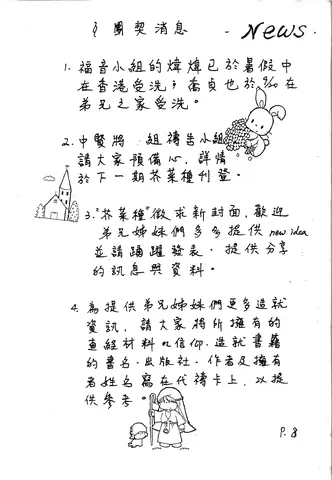 團契消息 - News -
1. 福音小組的煒煒已於暑假中
在香港受洗；喬貞也於9/20在
弟兄之家受洗。
2. 中賢將 組禱告小組
請大家預備心，詳情
於下一期芥菜種刊登。
3. "芥菜種"徵求新封面，歡迎
弟兄姊妹們多多提供 new idea
並請踴躍發表．提供分享
的訊息與資料。
4. 為提供弟兄姊妹們更多造就
資訊，請大家將所擁有的
查經材料 信仰．造就書籍
的書名．出版社．作者及擁有
者姓名寫在代禱卡上，以提
供參考。
P. 8